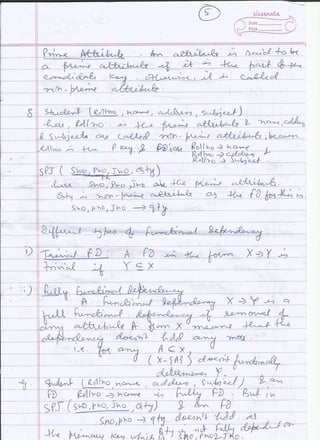 5
classmate
Date
Page
Prime Attribute - An attribute is said to be
a prime attribute if it is the part of the
candidate key. Otherwise, it is called
non-prime attribute.
Student (Rollno, name, address, subject)
here, Rollno is the prime attribute & name, address
& Subjects are called non-prime attributes, because
Rollno is the P key & FD is Rollno → name
Rollno → address &
Rollno → Subject
SPJ (Sno, Pno, Jno, qty)
here Sno, Pno, Jno are the prime attribute.
Qty is non-prime attribute as the FD for this is
Sno, Pno, Jno → qty
Different types of Functional Dependency.
i) Trivial FD: A FD in the form X → Y is
trivial if Y ⊆ X
ii) Fully Functional Dependency
A Functional Dependency X → Y is a
full functional dependency if removal of
any attribute A from X means that the
dependency doesn't hold any more.
i.e. for any A ∈ X,
(X - {A}) doesn't functionally
determine Y.
eg. Student (Rollno, name, address, subject) & an
FD Rollno → name is fully FD. But in
SPJ (Sno, Pno, Jno, qty) & an FD
Sno, Pno → qty doesn't hold as
Qty is not fully dependent on
the primary key which is Sno, Pno & Jno.